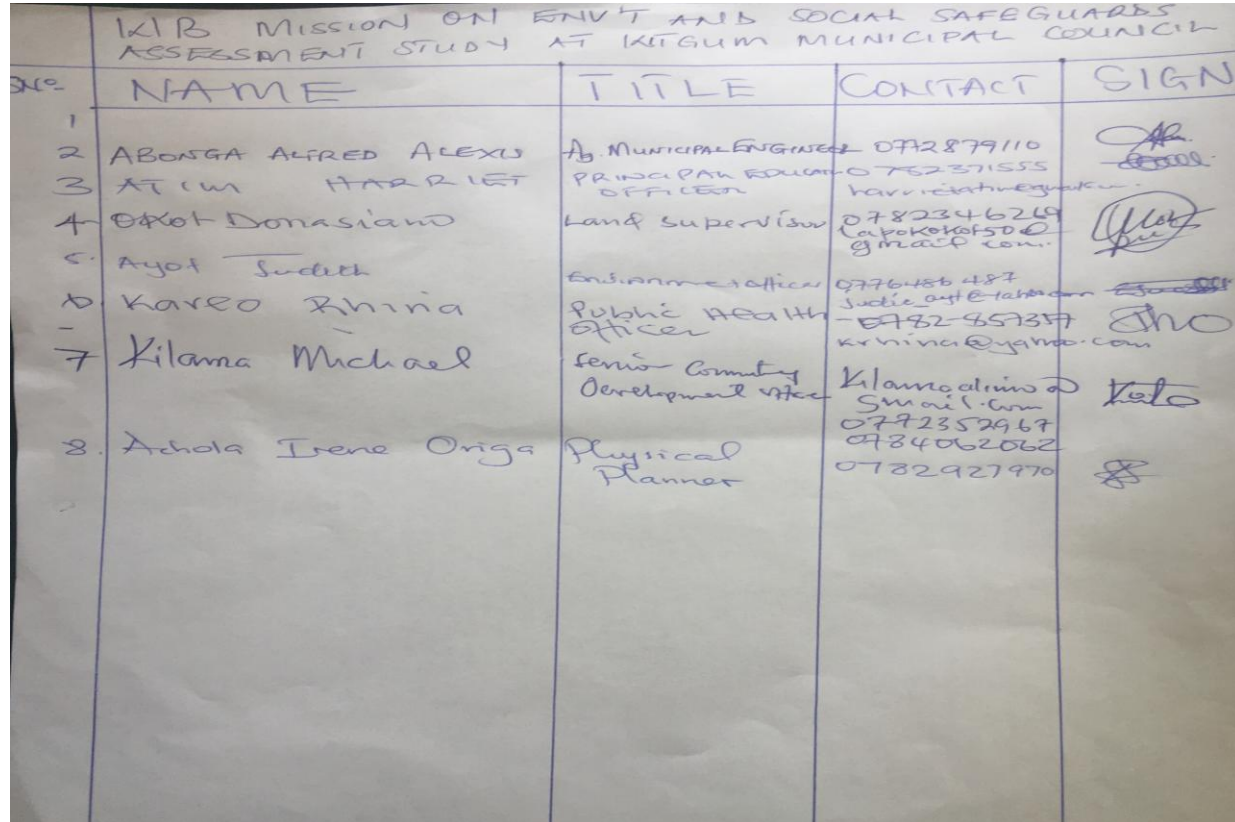 KIB MISSION ON ENV'T AND SOCIAL SAFEGUARDS
ASSESSMENT STUDY AT KITGUM MUNICIPAL COUNCIL
SNo NAME TITLE CONTACT SIGN
1
2 ABONGA ALFRED ALEXIS Ag. MUNICIPAL ENGINEER 0772879110
3 ATIM HARRIET PRINCIPAL EDUCATION 0752371555
OFFICER
4 Okot Donasiano Land supervisor 0782346269
lapokokot50@
gmail com.
5. Ayot Judith Environment officer 0776486487
6 Kareo Rhina Public Health 0782-857357
Officer krhina@yahoo.com
7 Kilama Michael Senior Community
Development Officer
0772352967
0784062062
8. Achola Irene Origa Physical 0782927970
Planner